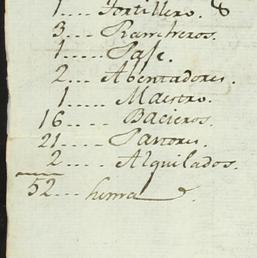 1.... Tortillero. 8
3.... Rancheros.
1.....
2... Abentadores.
1..... Maestro.
16.... Bacieros.
21.... Pastores.
2.... Alquilados.
52...